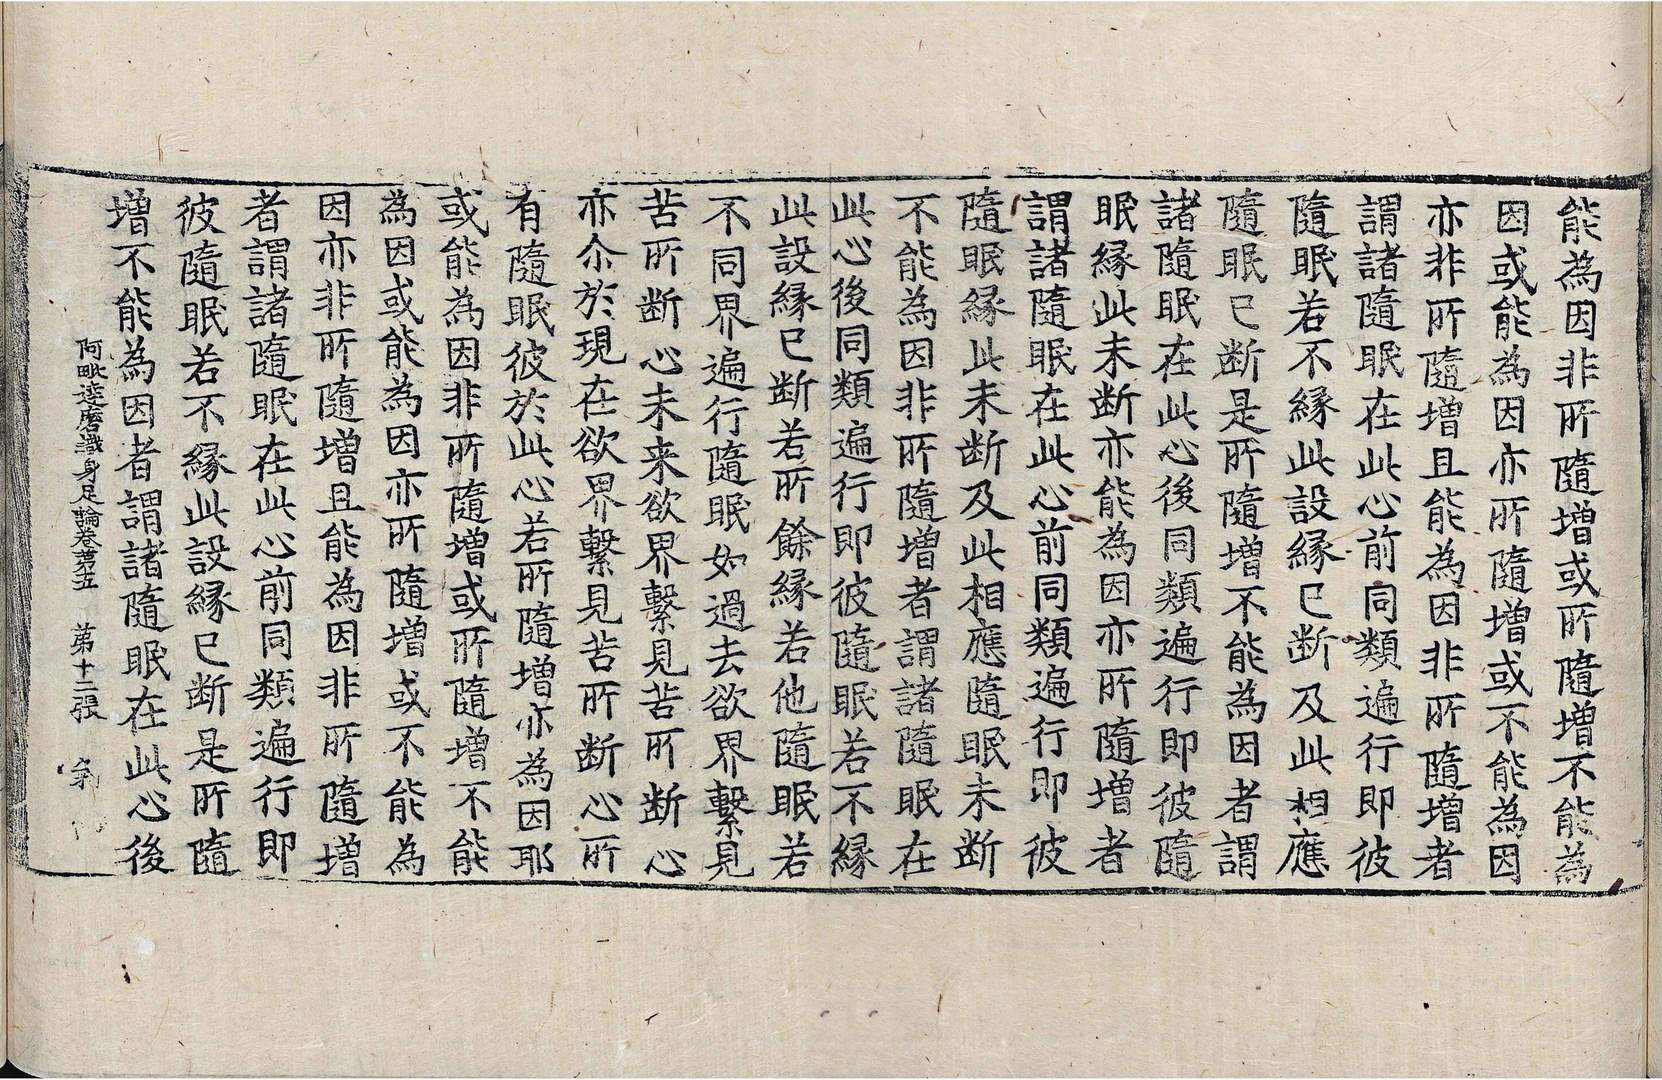 能為因非所隨增或所隨增不能為
因或能為因亦所隨增或不能為因
亦非所隨增且能為因非所隨增者
謂諸隨眠在此心前同類遍行即彼
隨眠若不緣此設緣已斷及此相應
隨眠已斷是所隨增不能為因者謂
諸隨眠在此心後同類遍行即彼隨
眠緣此未斷亦能為因亦所隨增者
謂諸隨眠在此心前同類遍行即彼
隨眠緣此未斷及此相應隨眠未斷
不能為因非所隨增者謂諸隨眠在
此心後同類遍行即彼隨眠若不緣
此設緣已斷若所餘緣若他隨眠若
不同界遍行隨眠如過去欲界繫見
苦所斷心未来欲界繫見苦所斷心
亦尒於現在欲界繫見苦所斷心所
有隨眠彼於此心若所隨增亦為因耶
或能為因非所隨增或所隨增不能
為因或能為因亦所隨增或不能為
因亦非所隨增且能為因非所隨增
者謂諸隨眠在此心前同類遍行即
彼隨眠若不緣此設緣已斷是所隨
增不能為因者謂諸隨眠在此心後
阿毗達磨識身足論卷第五 第十二張